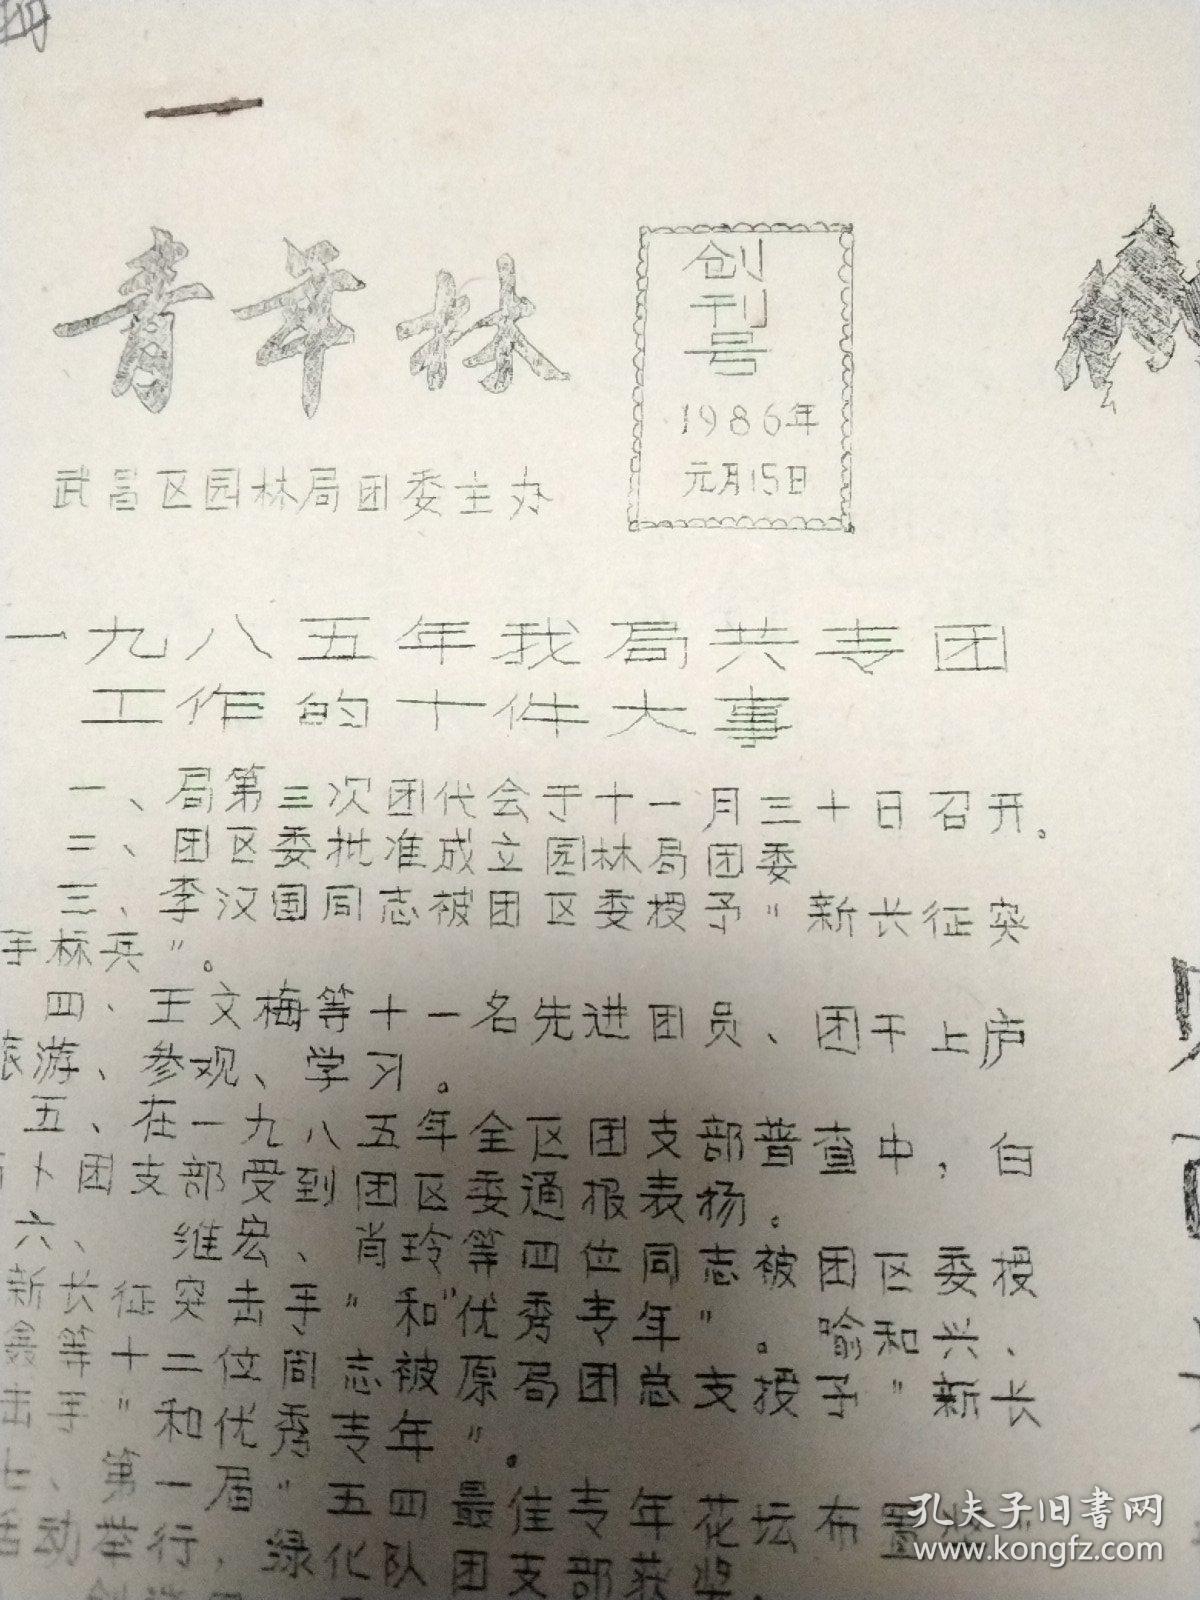 青年林
创刊号
1986年
元月15日
武昌区园林局团委主办
一九八五年我局共青团
工作的十件大事
一、局第三次团代会于十一月三十日召开。
二、团区委批准成立园林局团委
三、李汉国同志被团区委授予"新长征突
手标兵"。
四、王文梅等十一名先进团员、团干上庐
旅游、参观、学习。
五、在一九八五年全区团支部普查中，白
卜团支部受到团区委通报表扬。
六、 维宏、肖玲等四位同志被团区委授
新长征突击手"和"优秀青年"。喻和兴、
等十二位同志被原局团总支授予"新长
击手"和优秀青年"。
七、第一届"五四最佳青年花坛布置奖"
活动举行，绿化队团支部获奖。
孔夫子旧书网
www.kongfz.com